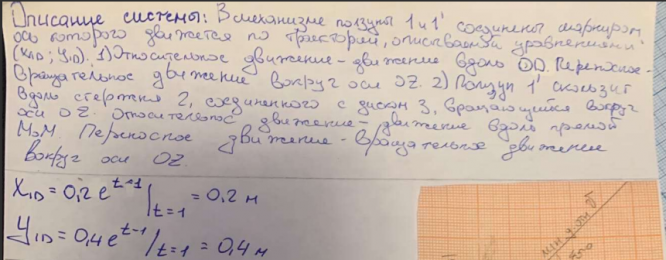 Описание системы: В механизме ползуны 1 и 1' соединены шарниром
ось которого движется по траектории, описываемой уравнениями
(x₁D; y₁D). 1) Относительное движение - движение вдоль OD. Переносное -
вращательное движение вокруг оси OZ. 2) Ползун 1' скользит
вдоль стержня 2, соединенного с диском 3, вращающийся вокруг
оси OZ. Относительное движение - движение вдоль прямой
M₀M Переносное движение - вращательное движение
вокруг оси OZ.
X₁D = 0,2 e^{t-1} /t=1 = 0,2 м
Y₁D = 0,4 e^{t-1} /t=1 = 0,4 м